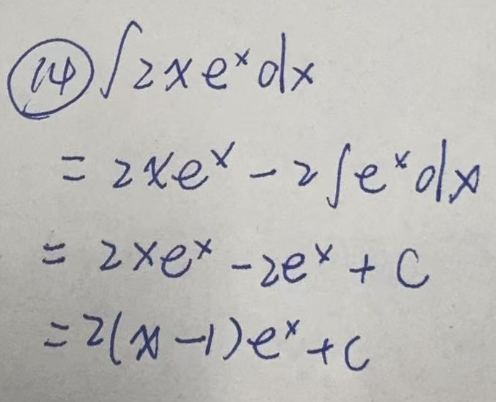 ⑭ ∫2xeˣdx
= 2xeˣ - 2∫eˣdx
= 2xeˣ - 2eˣ + C
= 2(x-1)eˣ + C